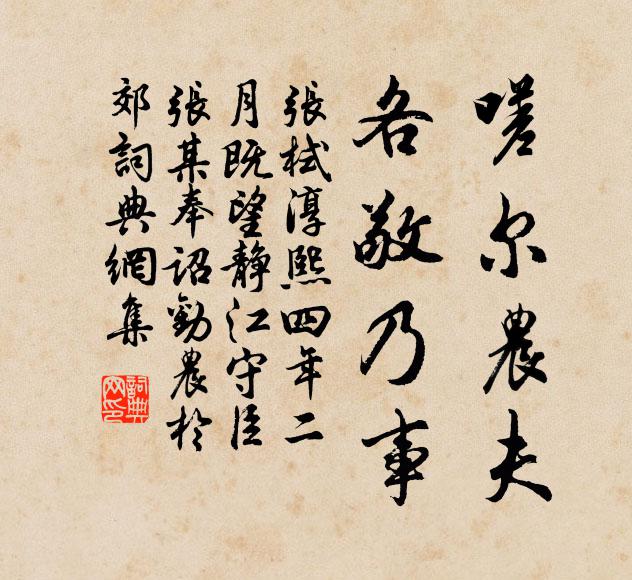 嗟尔農夫
各敬乃事
張栻淳熙四年二
月既望静江守臣
張某奉詔勸農於
郊詞典網集
詞典
网印